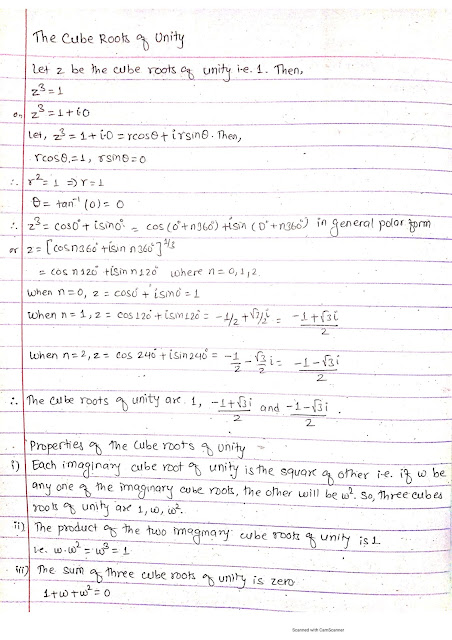 The Cube Roots of Unity
Let z be the cube roots of unity i.e. 1. Then,
z³ = 1
or, z³ = 1 + i·0
Let, z³ = 1 + i·0 = rcosθ + i rsinθ. Then,
rcosθ = 1, rsinθ = 0
∴ r² = 1 ⇒ r = 1
θ = tan⁻¹ (0) = 0
∴ z³ = cos0° + isin0° = cos (0° + n360°) + isin (0° + n360°) in general polar form
or z = [cosn360° + isin n360°]^1/3
= cos n120° + isin n120° where n = 0, 1, 2.
When n = 0, z = cos0° + isin0° = 1
When n = 1, z = cos120° + isin120° = -1/2 + √3/2 i = (-1 + √3i)/2
When n = 2, z = cos 240° + isin240° = -1/2 - √3/2 i = (-1 - √3i)/2
∴ The cube roots of unity are 1, (-1 + √3i)/2 and (-1 - √3i)/2.
Properties of the cube roots of unity
i) Each imaginary cube root of unity is the square of other i.e. if w be
any one of the imaginary cube roots, the other will be w². So, three cubes
roots of unity are 1, w, w².
ii) The product of the two imaginary cube roots of unity is 1
i.e. w·w² = w³ = 1
iii) The sum of three cube roots of unity is zero
1 + w + w² = 0
Scanned with CamScanner